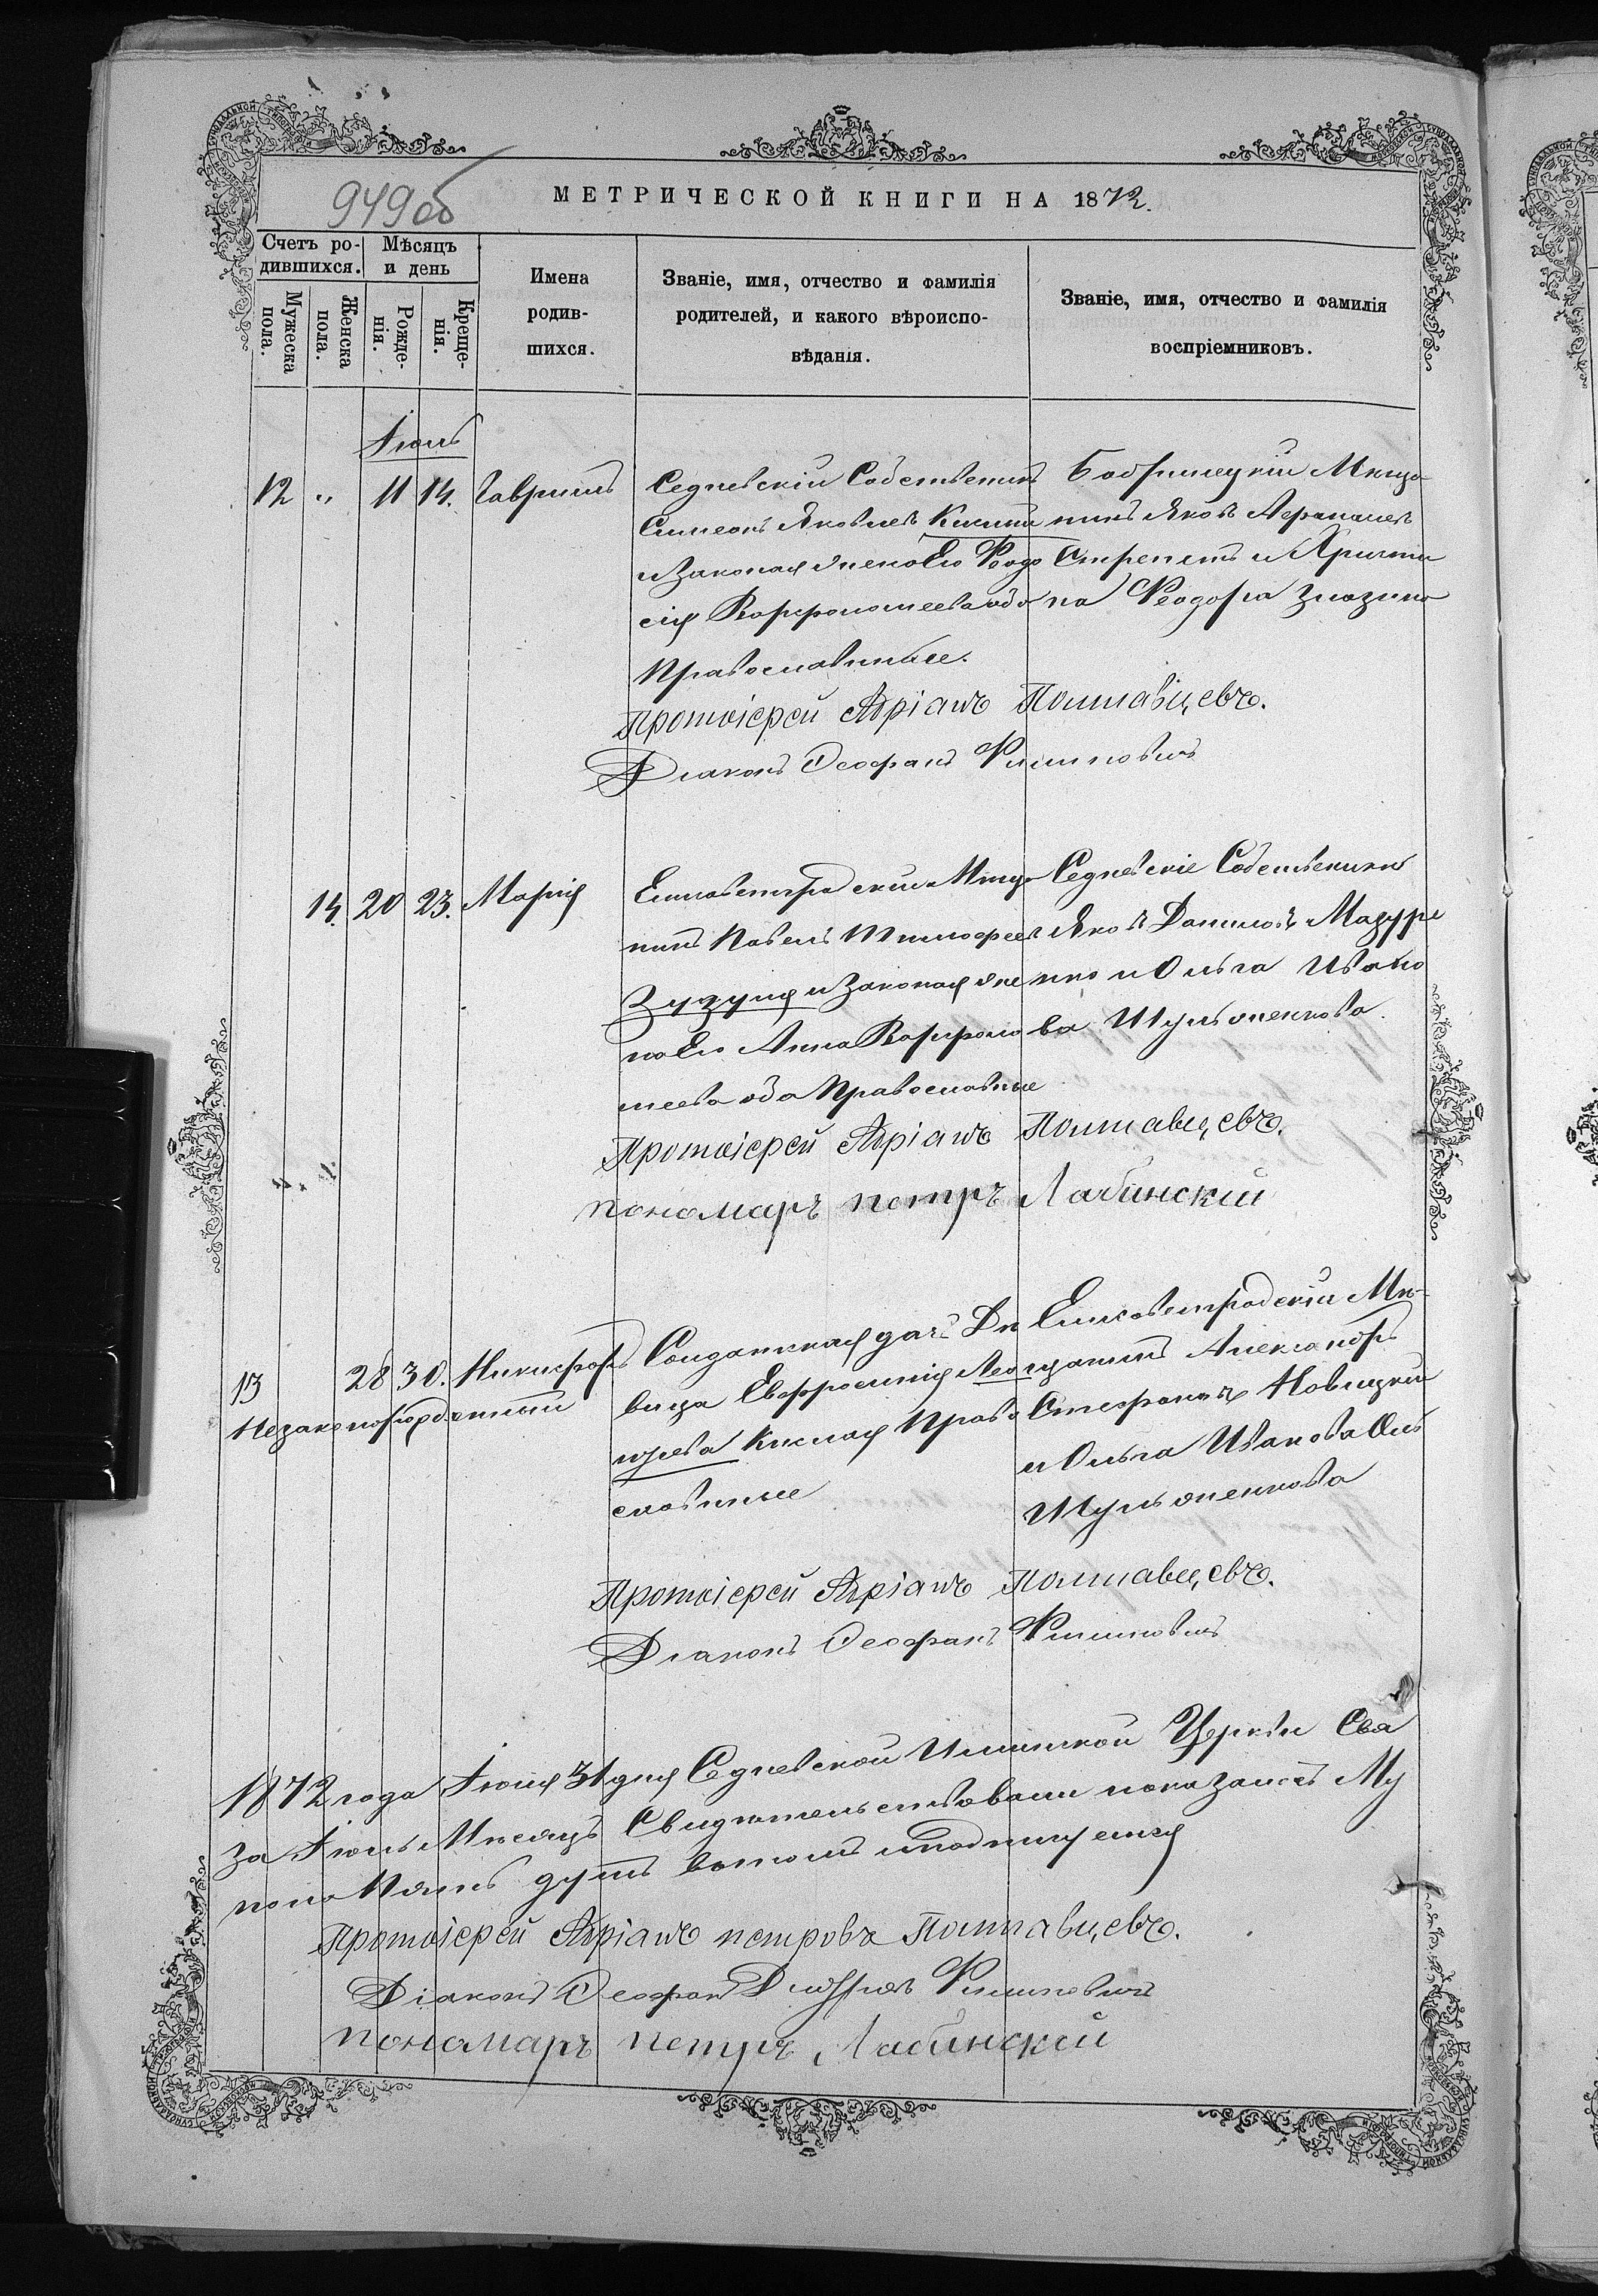 949об
МЕТРИЧЕСКОЙ КНИГИ НА 1872.
Счетъ родившихся.
Мѣсяцъ и день
Мужеска пола.
Женска пола.
Рожденія.
Крещенія.
Имена родившихся.
Званіе, имя, отчество и фамилія
родителей, и какого вѣроиспо-
вѣданія.
Званіе, имя, отчество и фамилія
воспріемниковъ.
Іюль
12 " 11 14. Гавріилъ
Седневскій Собственикъ
Симеонъ Яковлевъ
и Законая жена Его Феодо
сія Варфоломеева оба
Православные.
Бобринецкій Мѣща
нинъ Яковъ
Стрепетъ и Христи
на Феодора
Протоіерей Адріанъ Полтавцевъ.
Діаконъ Ѳеофанъ Филиповичъ
14. 20 23. Марія
Елисаветградскій Мѣща
нинъ Павелъ Тимофеевъ
Зузуля и Законая жe
на Его Анна Варфоло
меева оба Православные
Седневскіе Собственики
Яковъ Даниловъ Мазуре
нко и Ольга Ивано
ва Шульженкова.
Протоіерей Адріанъ Полтавцевъ.
пономарь петръ Лабинскій
13 28 30. Никифоръ
Незаконорожденный
Солдатская дочь Дѣ
вица Евфросинія
Кислая Право
славные
Елисаветградскій Мѣ-
щанинъ Александръ
Стефановъ Новицкій
и Ольга Иванова
Шульженкова
Протоіерей Адріанъ Полтавцевъ.
Діаконъ Ѳеофанъ Филиповичъ
1872 года Іюля 31 дня Седневской Ильинской Церкви Свя
за Іюль Мѣсяцъ Свидѣтельствовали показаность Му
пола душъ вътомъ иподпишемся
Протоіерей Адріанъ петровъ Полтавцевъ.
Діаконъ Ѳеофанъ Филиповичъ
пономарь петръ Лабинскій